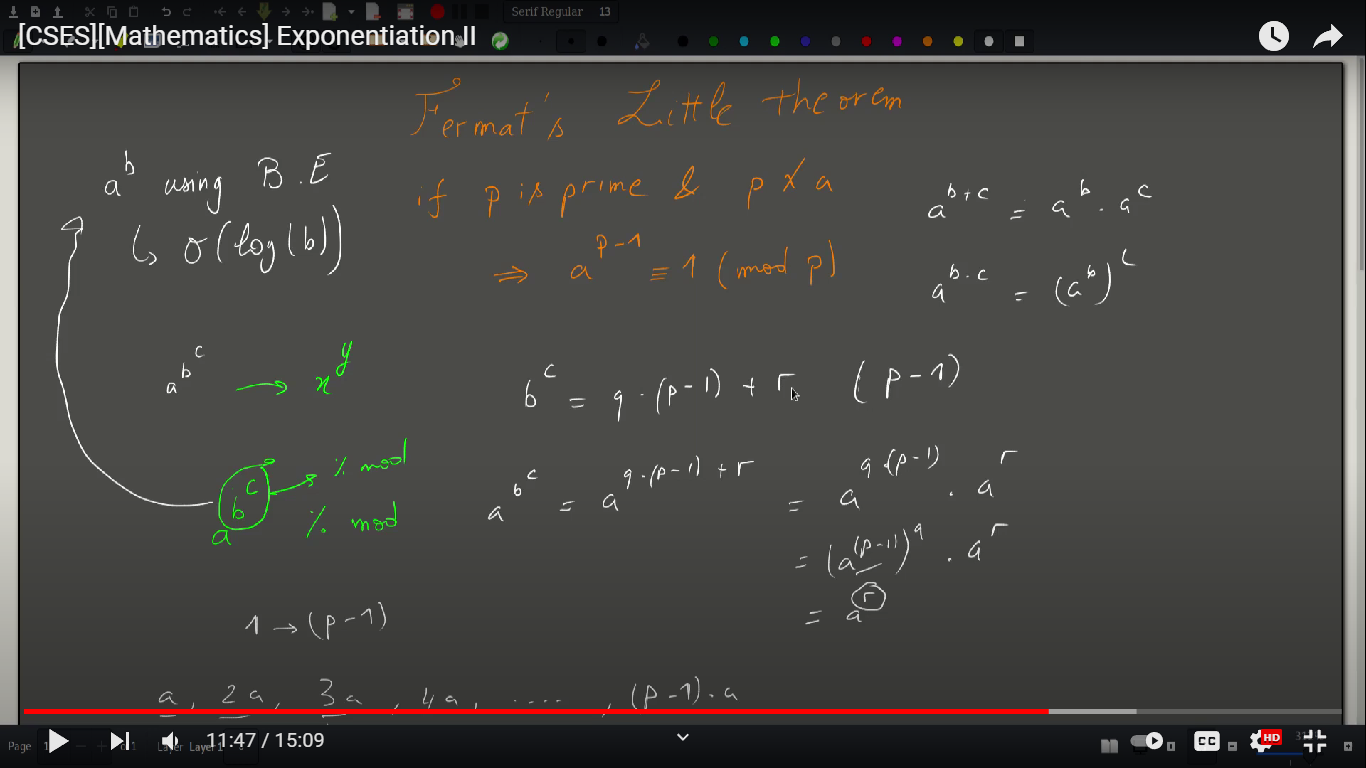 Serif Regular 13
[CSES][Mathematics] Exponentiation II
Fermat's Little theorem
a^b using B.E
↳ O(log(b))
if p is prime & p ∤ a
⇒ a^(p-1) ≡ 1 (mod p)
a^(b+c) = a^b · a^c
a^(b·c) = (a^b)^c
a^b^c → x^y
b^c = q · (p-1) + r (p-1)
a^b^c % mod
% mod
a^b^c = a^(q·(p-1)+r) = a^(q·(p-1)) · a^r
= (a^(p-1))^q · a^r
= a^r
1 → (p-1)
a, 2a, 3a, 4a, ...., (p-1)·a
11:47 / 15:09
CC
HD
Page
Layer Layer 1